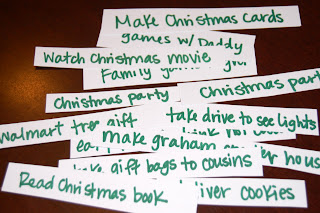 Make Christmas Cards
games w/ Daddy
Watch Christmas movie
Family
Christmas party
Christmas part
Walmart tree gift
take drive to see lights
make graham
hous
gift bags to cousins
Read Christmas book
iver cookies